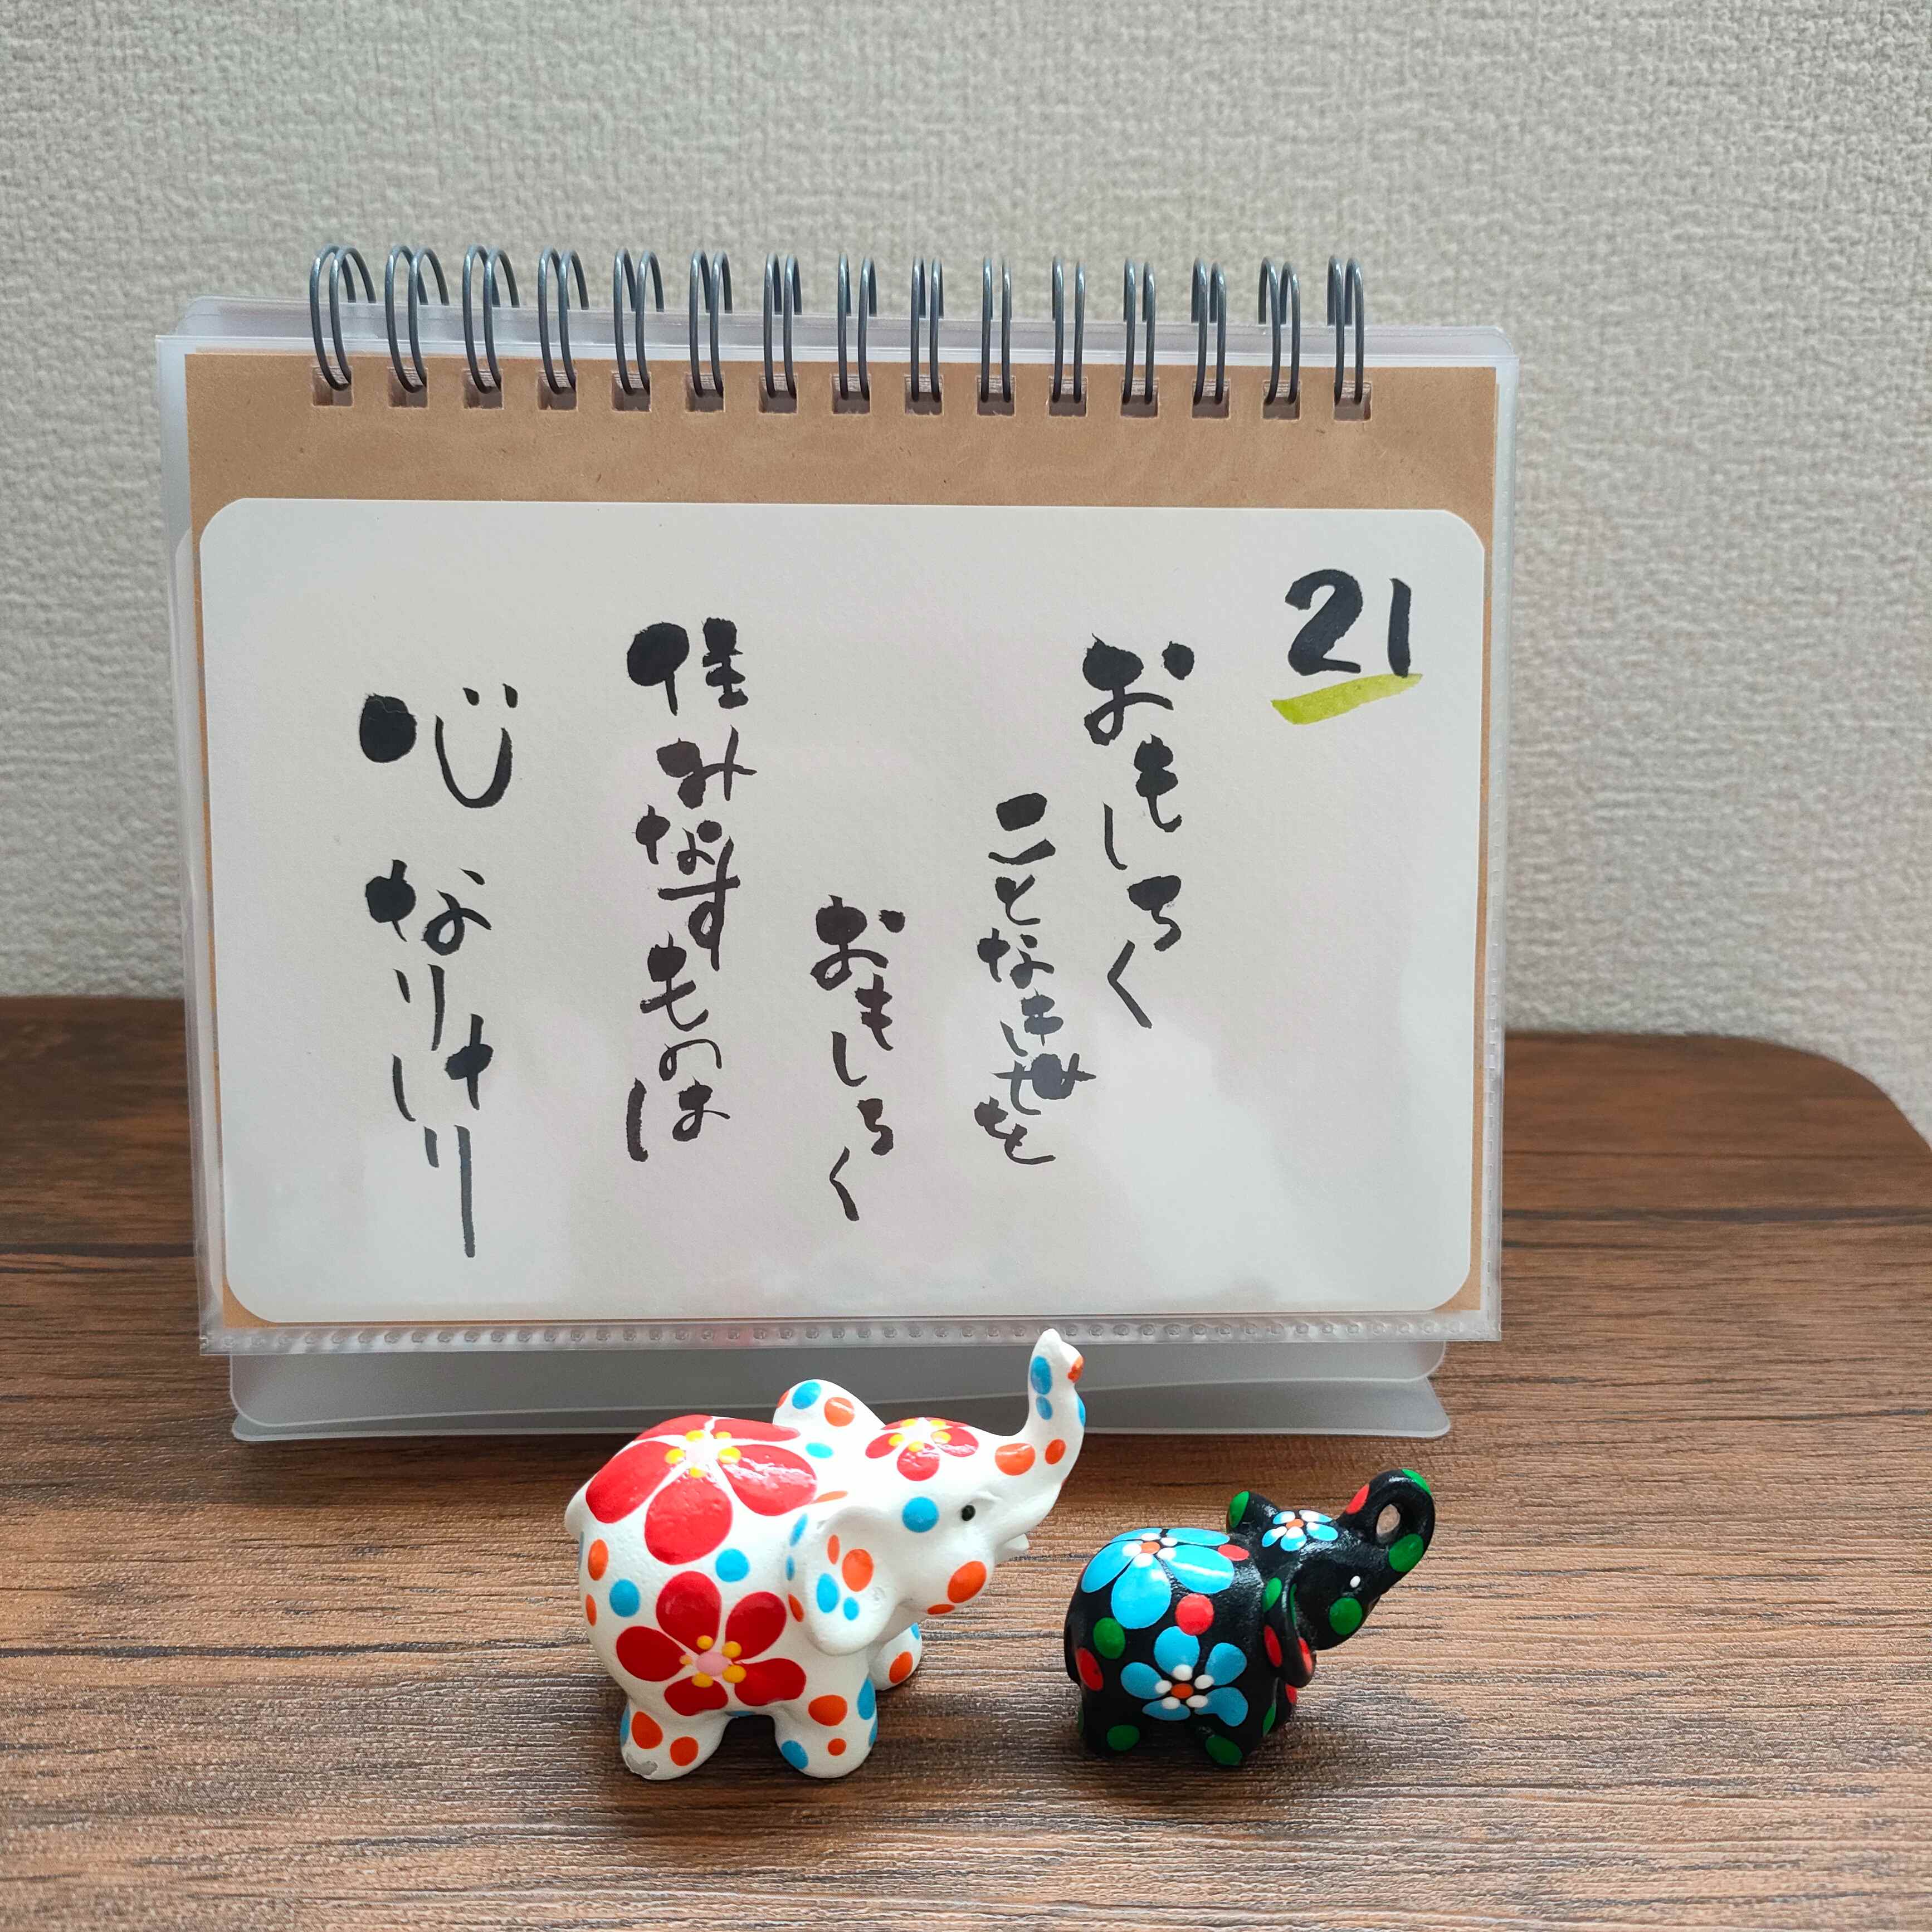 21
おもしろく
ことなき世を
おもしろく
住みなすものは
心なりけり